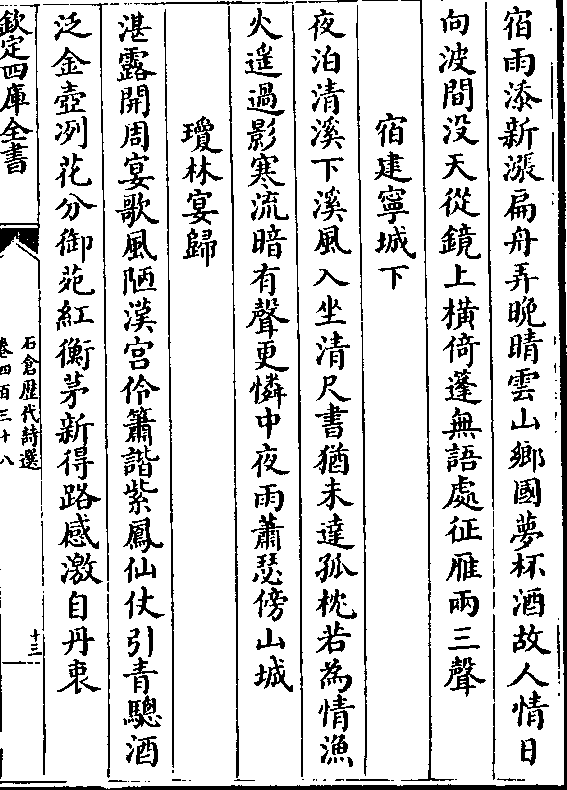 宿雨添新漲扁舟弄晚晴雲山鄉國夢杯酒故人情日
向波間没天從鏡上橫倚蓬無語處征雁兩三聲
宿建寧城下
夜泊清溪下溪風入坐清尺書猶未達孤枕若為情漁
火遙過影寒流暗有聲更憐中夜雨蕭瑟傍山城
瓊林宴歸
湛露開周宴歌風陋漢宮伶簫諧紫鳳仙仗引青驄酒
泛金壺冽花分御苑紅衡茅新得路感激自丹衷
欽定四庫全書
石倉歴代詩選
卷四百三十八
十三